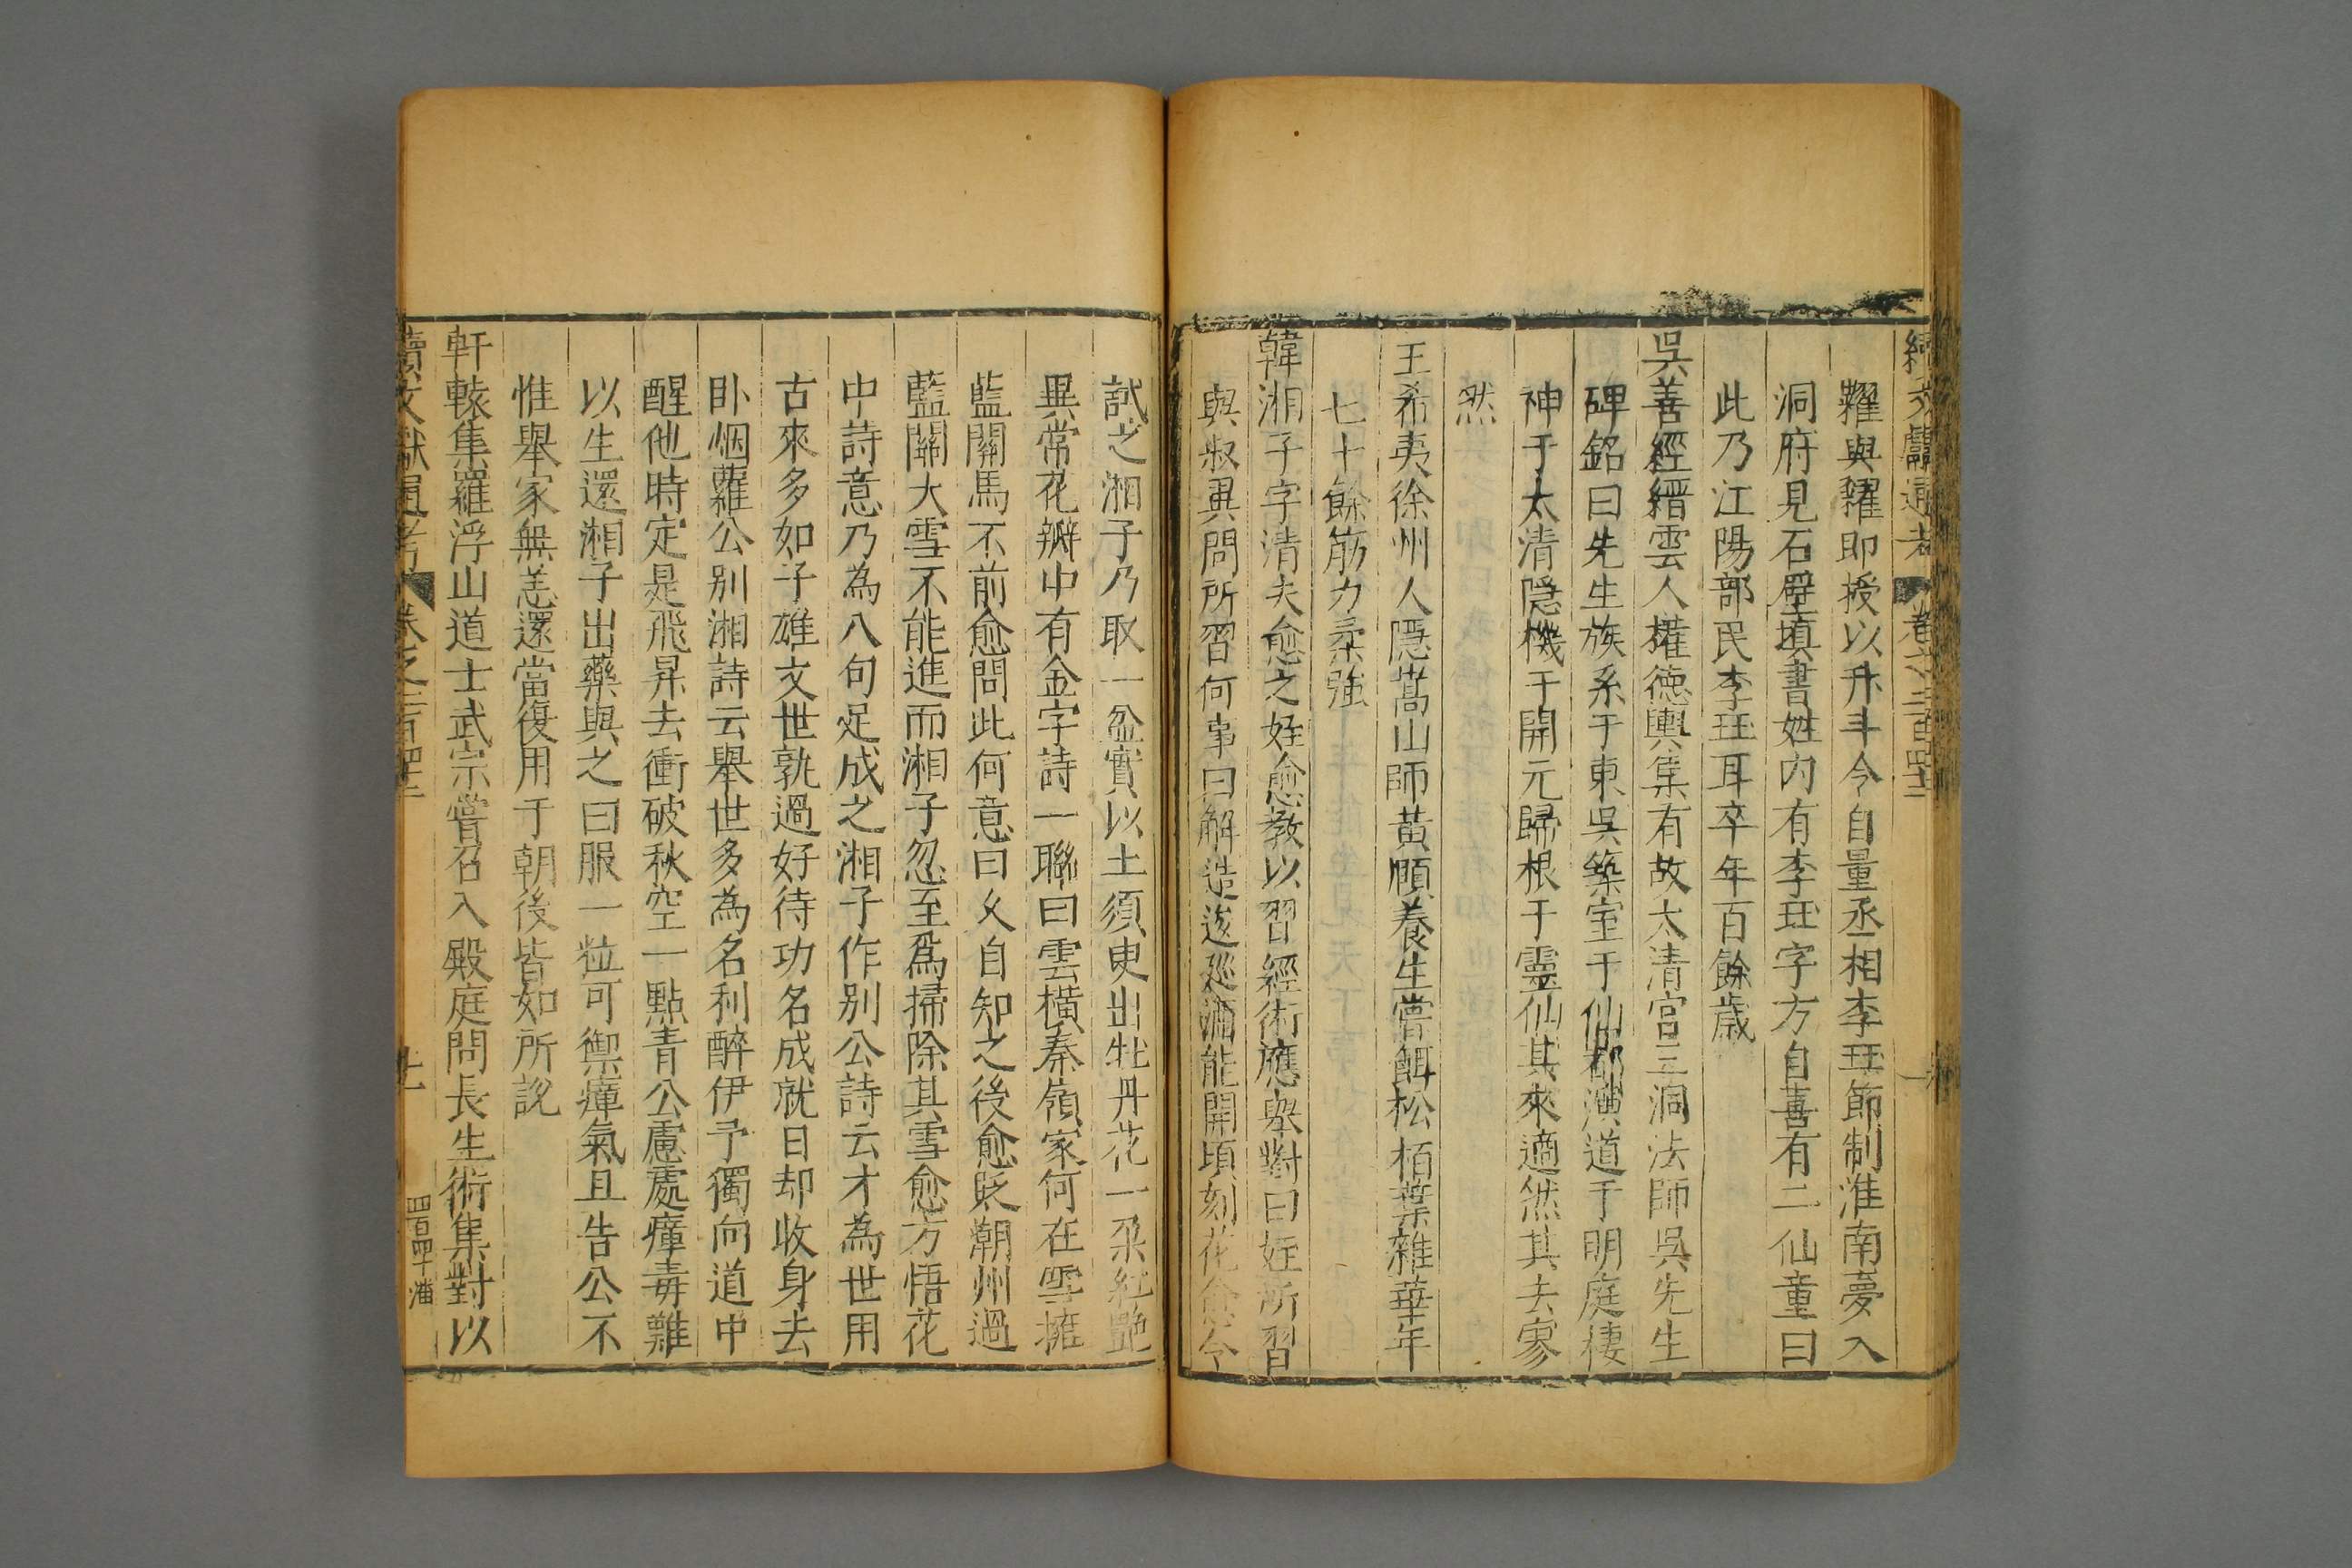 續文獻通考 卷之二百四十二
糶與糴即授以升斗令自量丞相李珏節制淮南夢入
洞府見石壁填書姓内有李珏字方自喜有二仙童曰
此乃江陽部民李珏耳卒年百餘歲
吳善經縉雲人權德輿集有故太清宮三洞法師吳先生
碑銘曰先生族系于東吳築室于仙都演道于明庭棲
神于太清隱機于開元歸根于靈仙其來適然其去寥
然
王希夷徐州人隱嵩山師黃頤養生嘗餌松栢葉雜華年
七十餘筋力柔強
韓湘子字清夫愈之姪愈教以習經術應舉對曰姪所習
與叔異問所習何事曰解造逡廵酒能開頃刻花愈令
試之湘子乃取一盆實以土須臾出牡丹花一朶紅艷
異常花瓣中有金字詩一聯曰雲橫秦嶺家何在雪擁
藍關馬不前愈問此何意曰父自知之後愈貶潮州過
藍關大雪不能進而湘子忽至爲掃除其雪愈方悟花
中詩意乃為八句足成之湘子作别公詩云才為世用
古來多如子雄文世孰過好待功名成就日却收身去
卧烟蘿公别湘詩云舉世多為名利醉伊予獨向道中
醒他時定是飛昇去衝破秋空一點青公慮處瘴毒難
以生還湘子出藥與之曰服一粒可禦瘴氣且告公不
惟舉家無恙還當復用于朝後皆如所說
軒轅集羅浮山道士武宗嘗召入殿庭問長生術集對以
續文獻通考 卷之二百四十二